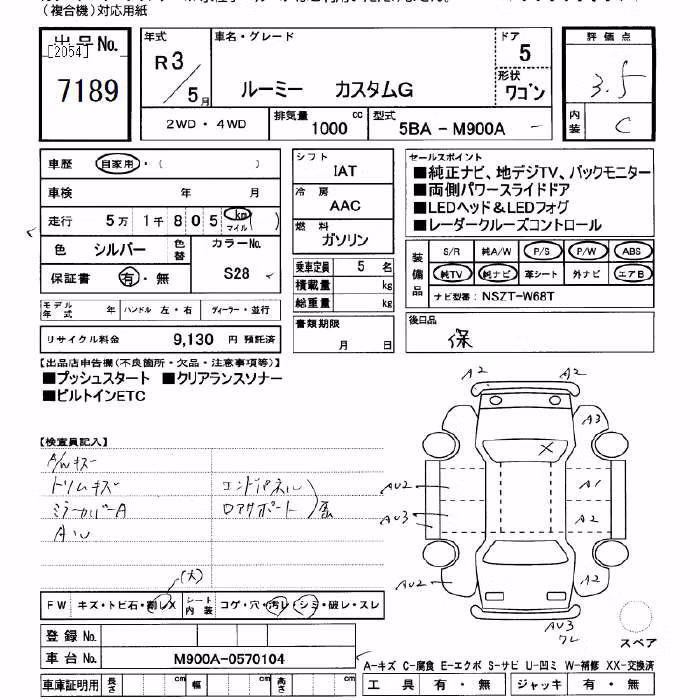 (複合機)対応用紙
出品No.
[2054]
7189
年式
R3
5月
車名・グレード
ルーミー カスタムG
ドア
5
形状
ワゴン
2WD・4WD
排気量
1000 cc
型式
5BA - M900A
評価点
3.5
内装
C
車歴 自家用・( )
車検 年 月
走行 5万 1千 805 km マイル ( )
色 シルバー
色替
カラーNo.
S28
保証書 有・無
モデル年式 年 ハンドル 左・右 ディーラー・並行
リサイクル料金 9,130 円 預託済
シフト
IAT
冷房
AAC
燃料
ガソリン
乗車定員 5 名
積載量 kg
総重量 kg
書類期限
月 日
セールスポイント
■純正ナビ、地デジTV、バックモニター
■両側パワースライドドア
■LEDヘッド&LEDフォグ
■レーダークルーズコントロール
装備品
S/R 純A/W P/S P/W ABS
純TV 純ナビ 革シート 外ナビ エアB
ナビ型番: NSZT-W68T
後日品
保
【出品店申告欄(不良箇所・欠品・注意事項等)】
■プッシュスタート ■クリアランスソナー
■ビルトインETC
【検査員記入】
A/Wキズ
トリムキズ
コンドパネル
ミラーカバーA
ロアサポート
AW
(大)
FW キズ・トビ石・割レX
シート内装 コゲ・穴・汚レ・シミ・破レ・スレ
登録No.
車台No. M900A-0570104
車庫証明用 長さ cm 幅 cm 高さ cm
A2
A2
A3
X
AU2
A1
AU3
A2
AU2
A2
AU3
ワレ
スペア
A-キズ C-腐食 E-エクボ S-サビ U-凹ミ W-補修 XX-交換済
工具 有・無 ジャッキ 有・無